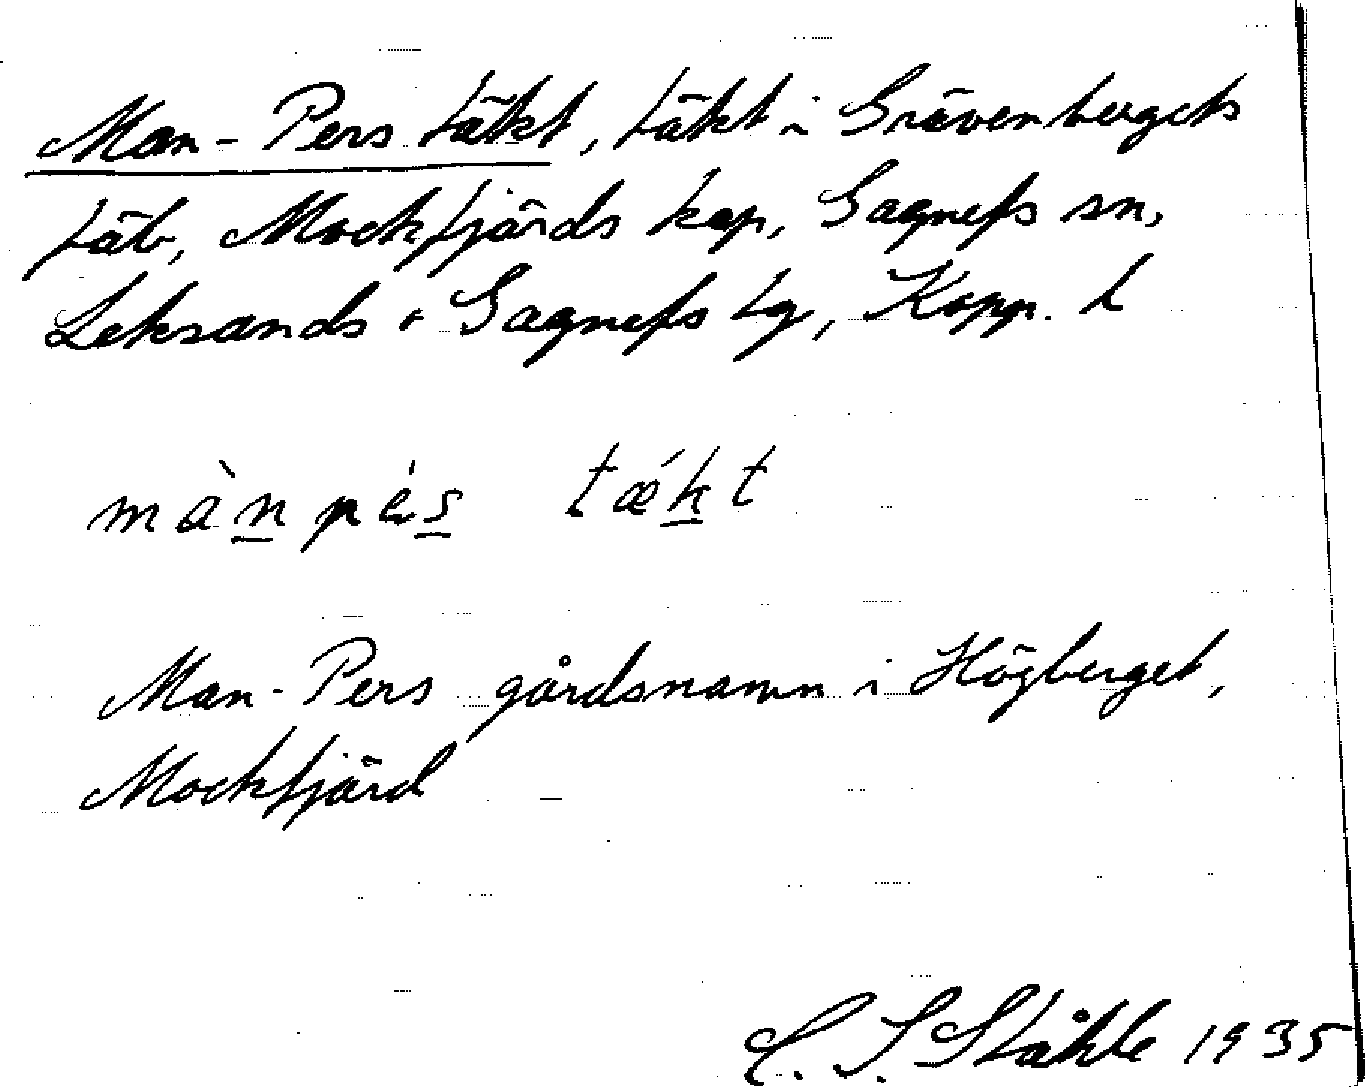 Man-Pers täkt, täkt i Grävenbergets
fäb, Mockfjärds kap, Gagnefs sn,
Leksands o Gagnefs tg, Kopp. l
mànpés tǽkt
Man-Pers gårdsnamn i Högberget,
Mockfjärd
C. I. Ståhle 1935